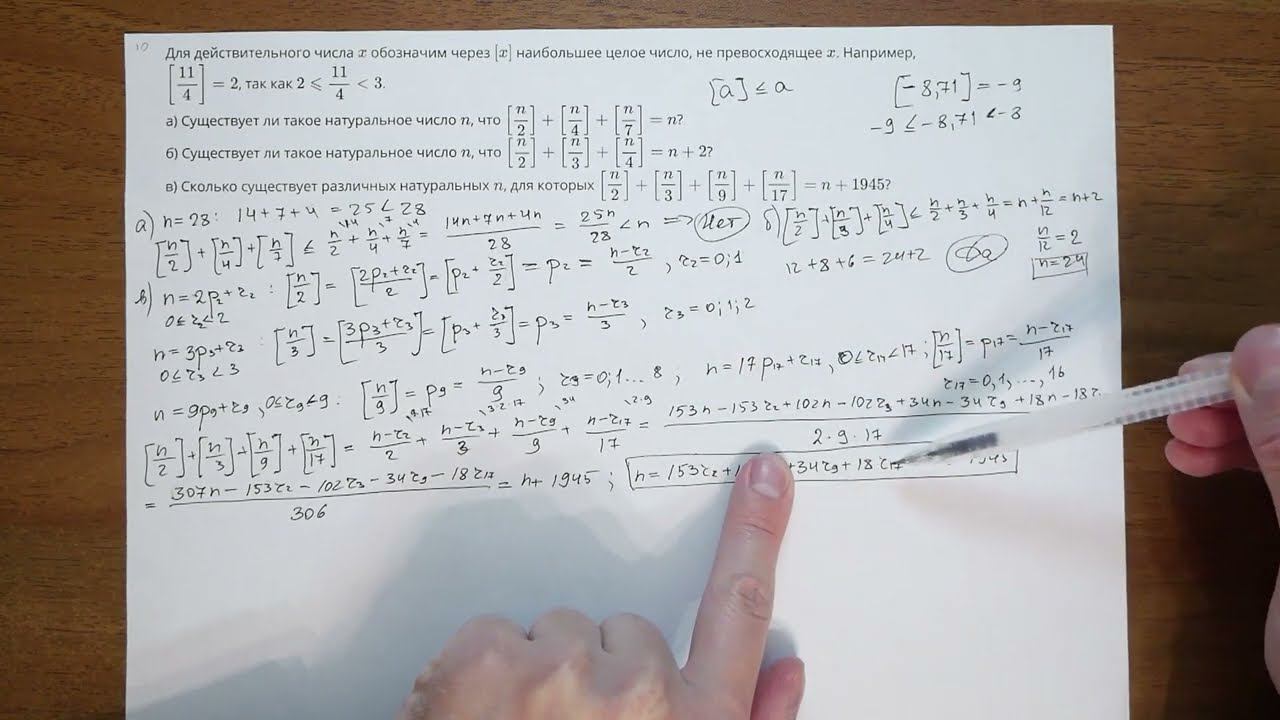 10
Для действительного числа x обозначим через [x] наибольшее целое число, не превосходящее x. Например,
[11/4] = 2, так как 2 ⩽ 11/4 < 3.
[a] ≤ a
[-8,71] = -9
-9 ≤ -8,71 < -8
а) Существует ли такое натуральное число n, что [n/2] + [n/4] + [n/7] = n?
б) Существует ли такое натуральное число n, что [n/2] + [n/3] + [n/4] = n + 2?
в) Сколько существует различных натуральных n, для которых [n/2] + [n/3] + [n/9] + [n/17] = n + 1945?
а) n=28: 14+7+4 = 25 < 28
[n/2]+[n/4]+[n/7] ≤ n/2 + n/4 + n/7 = (14n+7n+4n)/28 = 25n/28 < n => Нет
б) [n/2]+[n/3]+[n/4] ≤ n/2+n/3+n/4 = n+n/12 = n+2
n/12 = 2
12+8+6 = 24+2 Да n=24
в) n=2p₂+r₂ : [n/2] = [(2p₂+r₂)/2] = [p₂+r₂/2] = p₂ = (n-r₂)/2, r₂=0;1
0≤r₂<2
n=3p₃+r₃ : [n/3] = [(3p₃+r₃)/3] = [p₃+r₃/3] = p₃ = (n-r₃)/3, r₃=0;1;2
0≤r₃<3
n=9p₉+r₉, 0≤r₉<9: [n/9] = p₉ = (n-r₉)/9; r₉=0;1...8; n=17p₁₇+r₁₇, 0≤r₁₇<17; [n/17] = p₁₇ = (n-r₁₇)/17
r₁₇=0,1,...,16
[n/2]+[n/3]+[n/9]+[n/17] = (n-r₂)/2 + (n-r₃)/3 + (n-r₉)/9 + (n-r₁₇)/17 = (153n-153r₂+102n-102r₃+34n-34r₉+18n-18r)/(2·9·17)
= (307n-153r₂-102r₃-34r₉-18r₁₇)/306 = n+1945; n=153r₂+1 +34r₉+18r₁₇